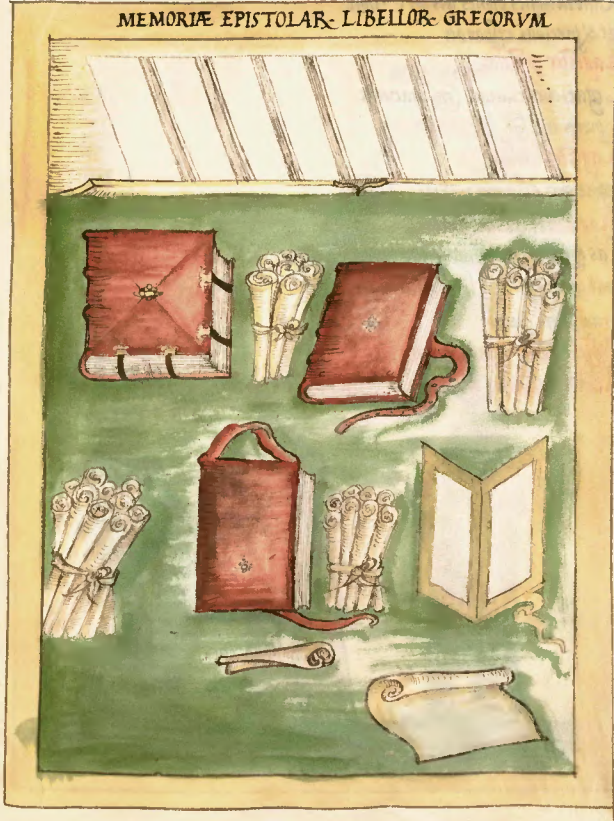 MEMORIÆ EPISTOLAR. LIBELLOR. GRECORVM